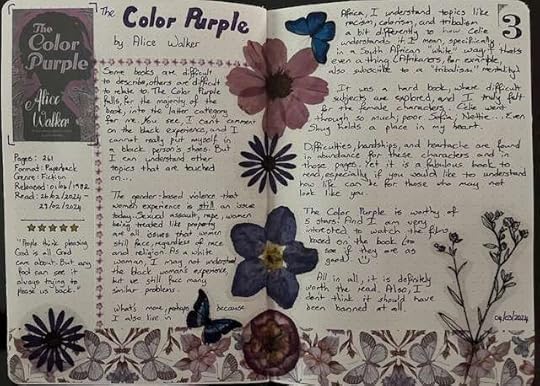 The
Color Purple
by Alice Walker
The
Color
Purple
Alice
Walker
Pages: 261
Format: Paperback
Genre: Fiction
Released: 01/06/1982
Read: 26/02/2024 -
29/02/2024
"People think pleasing
God is all God
care about. But any
fool can see it
always trying to
please us back."
Some books are difficult
to describe, others are difficult
to relate to. The Color Purple
falls, for the majority of the
book, in the latter category
for me. You see, I can't comment
on the black experience, and I
cannot really put myself in
a black person's shoes. But I
can understand other
topics that are touched
on...
The gender-based violence that
women experience is still an issue
today. Sexual assault, rape, women
being treated like property
are all issues that women
still face, regardless of race
and religion. As a white
woman, I may not understand
the black woman's experience,
but we still face many
similar problems.
What's more, perhaps because
I also live in
Africa, I understand topics like
racism, colorism, and tribalism
a bit differently to how Celie
understands it. I mean, specifically
in a South African "white" way, if that's
even a thing (Afrikaners, for example,
also subscribe to a "tribalism" mentality).
3
It was a hard book, where difficult
subjects are explored, and I truly felt
for the female characters. Celie went
through so much; poor Sofia; Nettie... Even
Shug holds a place in my heart.
Difficulties, hardships, and heartache are found
in abundance for these characters and in
those pages. Yet it is a fabulous book to
read, especially if you would like to understand
how life can be for those who may not
look like you.
The Color Purple is worthy of
5 stars! And I am very
interested to watch the films
based on the book (to
see if they are as
good).
All in all, it is definitely
worth the read. Also, I
don't think it should have
been banned at all.
04/03/2024